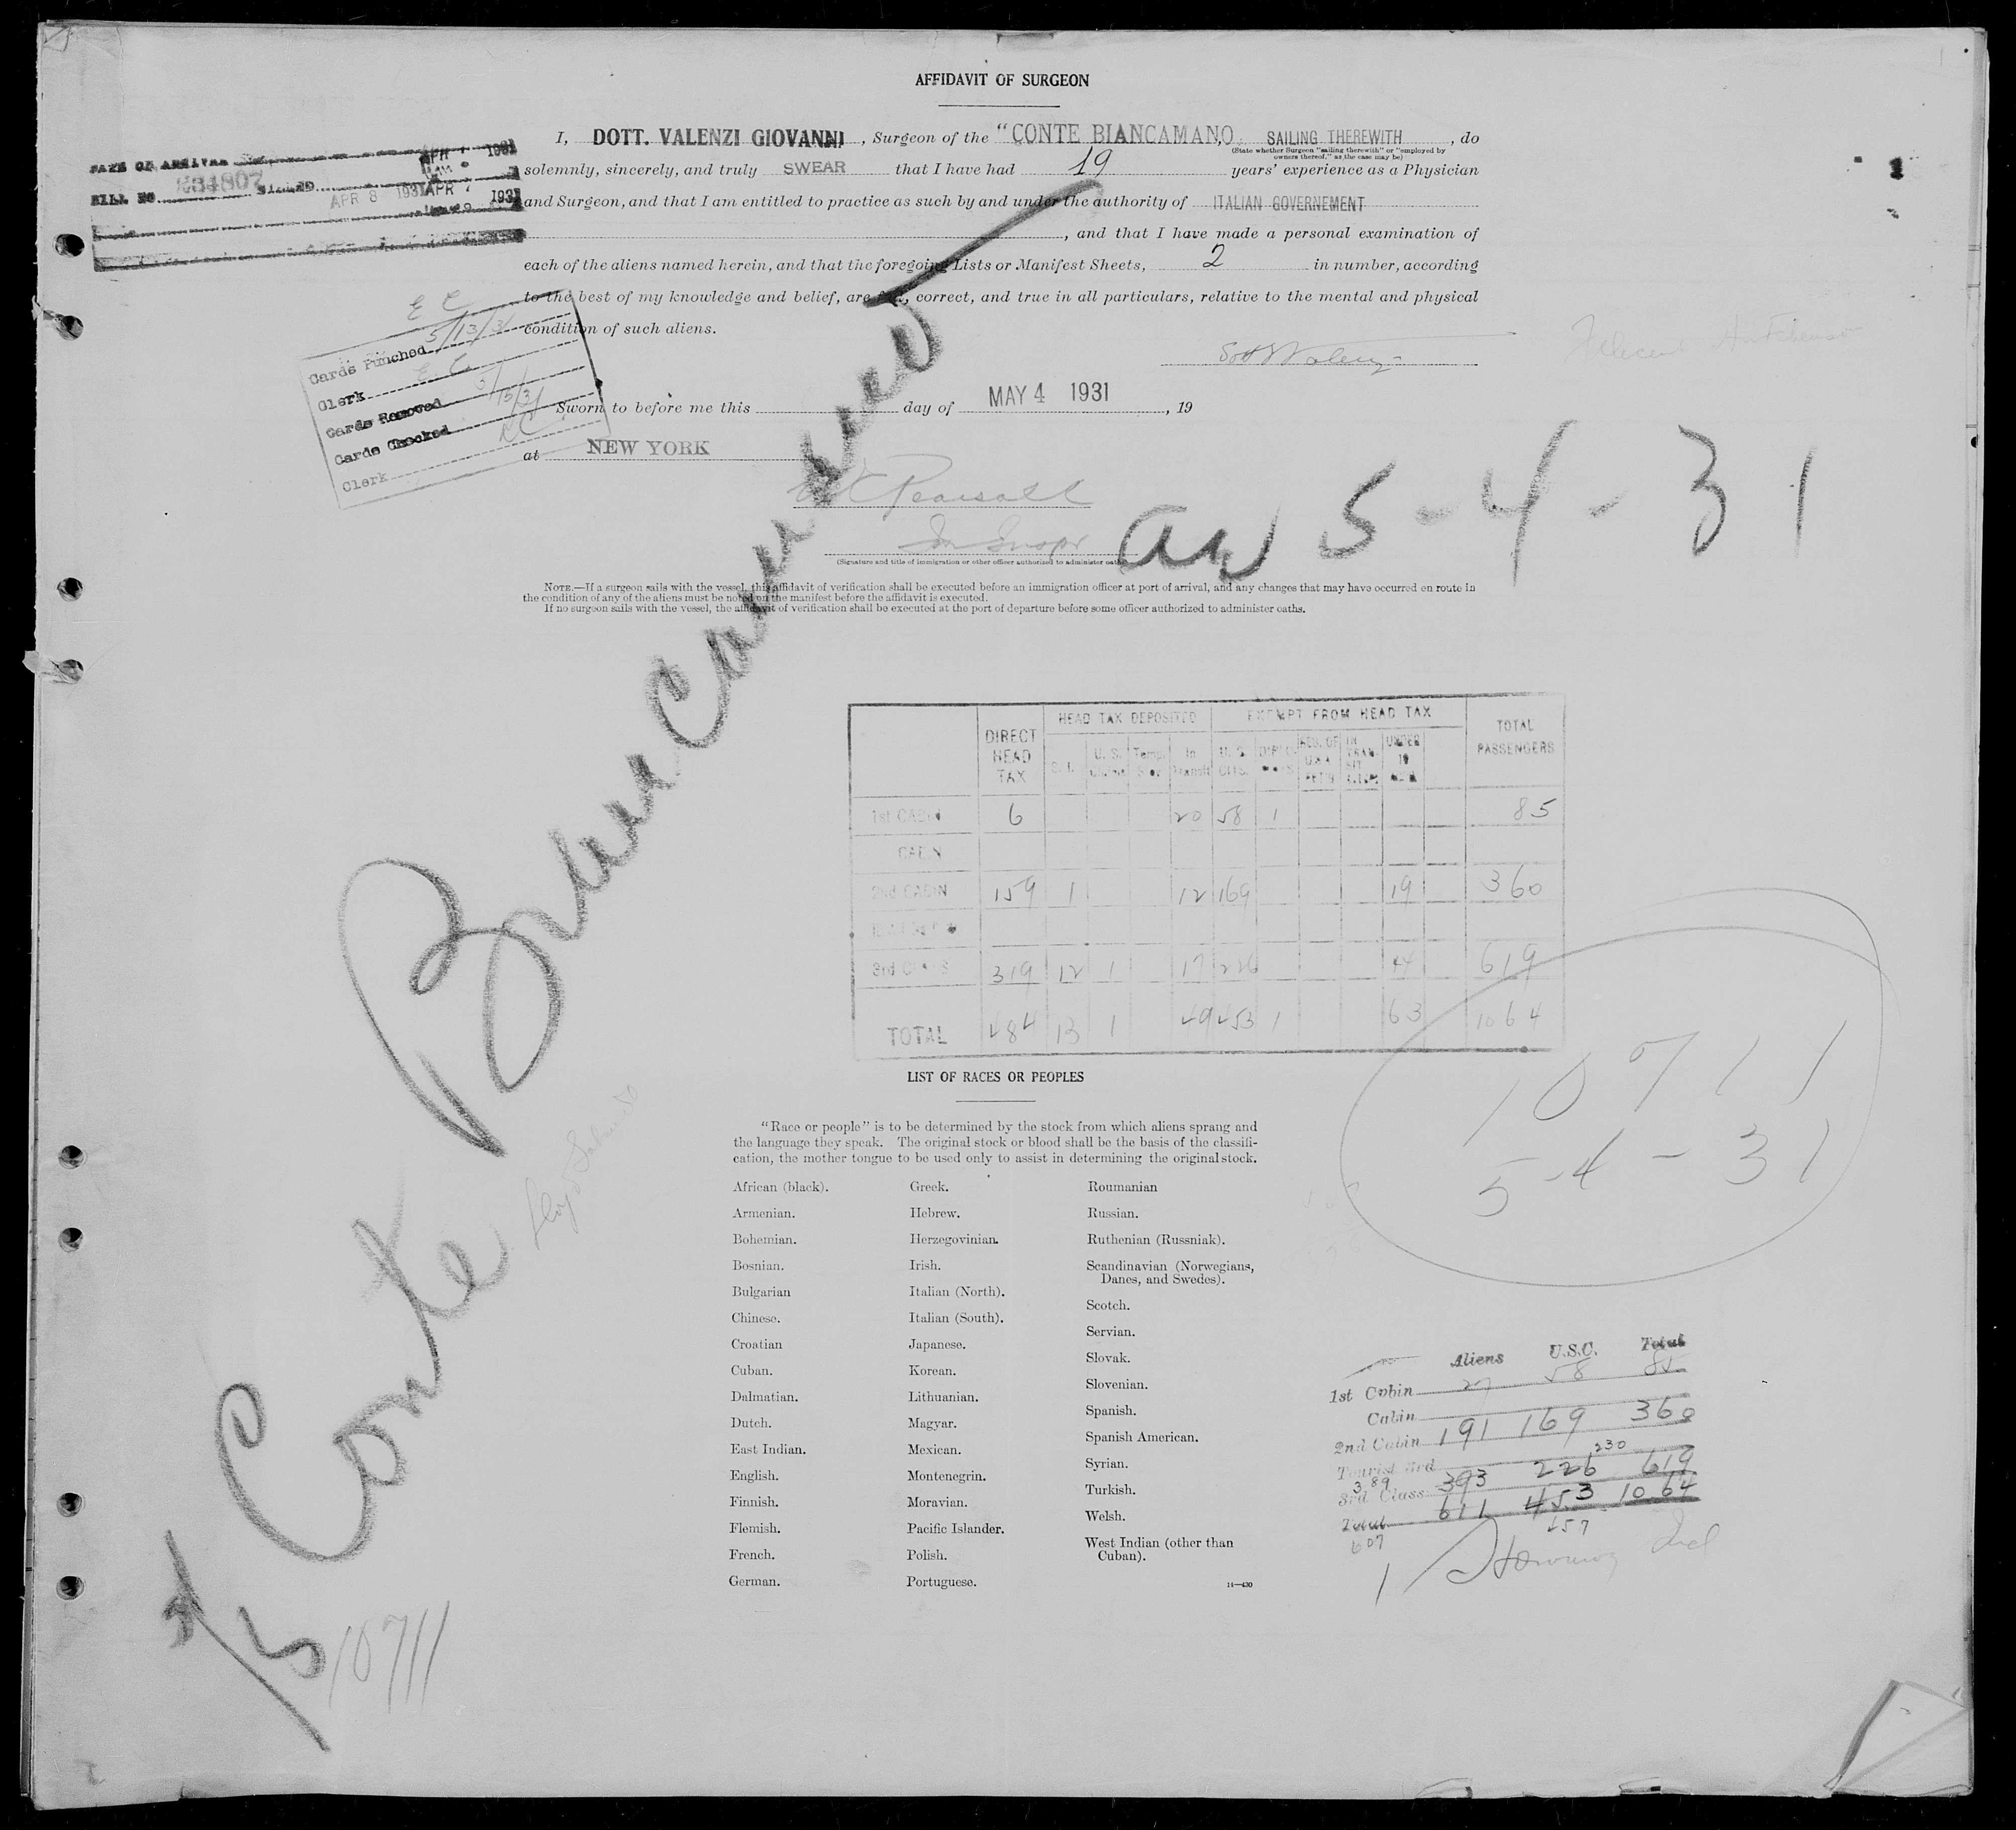 AFFIDAVIT OF SURGEON
I, DOTT. VALENZI GIOVANNI, Surgeon of the "CONTE BIANCAMANO, SAILING THEREWITH, do
(State whether Surgeon "sailing therewith" or "employed by
owners thereof," as the case may be)
solemnly, sincerely, and truly SWEAR that I have had 19 years' experience as a Physician
and Surgeon, and that I am entitled to practice as such by and under the authority of ITALIAN GOVERNEMENT
, and that I have made a personal examination of
each of the aliens named herein, and that the foregoing Lists or Manifest Sheets, 2 in number, according
to the best of my knowledge and belief, are correct, and true in all particulars, relative to the mental and physical
condition of such aliens.
DATE OF ARRIVAL APR 1931
BILL NO. APR 8 1931 APR 7 1931
E C
Cards Punched 5/13/31
Clerk E C
Cards Removed 5/13/31
Cards Checked
Clerk
Sworn to before me this day of MAY 4 1931, 19
at NEW YORK
Pearsall
(Signature and title of immigration or other officer authorized to administer oath
5-4-31
NOTE.—If a surgeon sails with the vessel, this affidavit of verification shall be executed before an immigration officer at port of arrival, and any changes that may have occurred en route in
the condition of any of the aliens must be noted on the manifest before the affidavit is executed.
If no surgeon sails with the vessel, the affidavit of verification shall be executed at the port of departure before some officer authorized to administer oaths.
Conte Biancamano
10711
DIRECT HEAD TAX HEAD TAX DEPOSITED EXEMPT FROM HEAD TAX TOTAL PASSENGERS
U. S. Temp. In Transit U. S. CITS. UNDER
1st CABIN 6 20 58 1 85
CABIN
2nd CABIN 159 1 12 169 19 360
3rd CLASS 319 12 1 17 226 44 619
TOTAL 484 13 1 49 453 1 63 1064
10711
5-4-31
LIST OF RACES OR PEOPLES
"Race or people" is to be determined by the stock from which aliens sprang and
the language they speak. The original stock or blood shall be the basis of the classifi-
cation, the mother tongue to be used only to assist in determining the original stock.
African (black).
Armenian.
Bohemian.
Bosnian.
Bulgarian
Chinese.
Croatian
Cuban.
Dalmatian.
Dutch.
East Indian.
English.
Finnish.
Flemish.
French.
German.
Greek.
Hebrew.
Herzegovinian.
Irish.
Italian (North).
Italian (South).
Japanese.
Korean.
Lithuanian.
Magyar.
Mexican.
Montenegrin.
Moravian.
Pacific Islander.
Polish.
Portuguese.
Roumanian
Russian.
Ruthenian (Russniak).
Scandinavian (Norwegians,
Danes, and Swedes).
Scotch.
Servian.
Slovak.
Slovenian.
Spanish.
Spanish American.
Syrian.
Turkish.
Welsh.
West Indian (other than
Cuban).
14—430
Aliens U.S.C. Total
1st Cabin 27 58 85
Cabin
2nd Cabin 191 169 360
Tourist 3rd 230
3rd Class 389 393 226 619
Total 611 453 1064
607 457